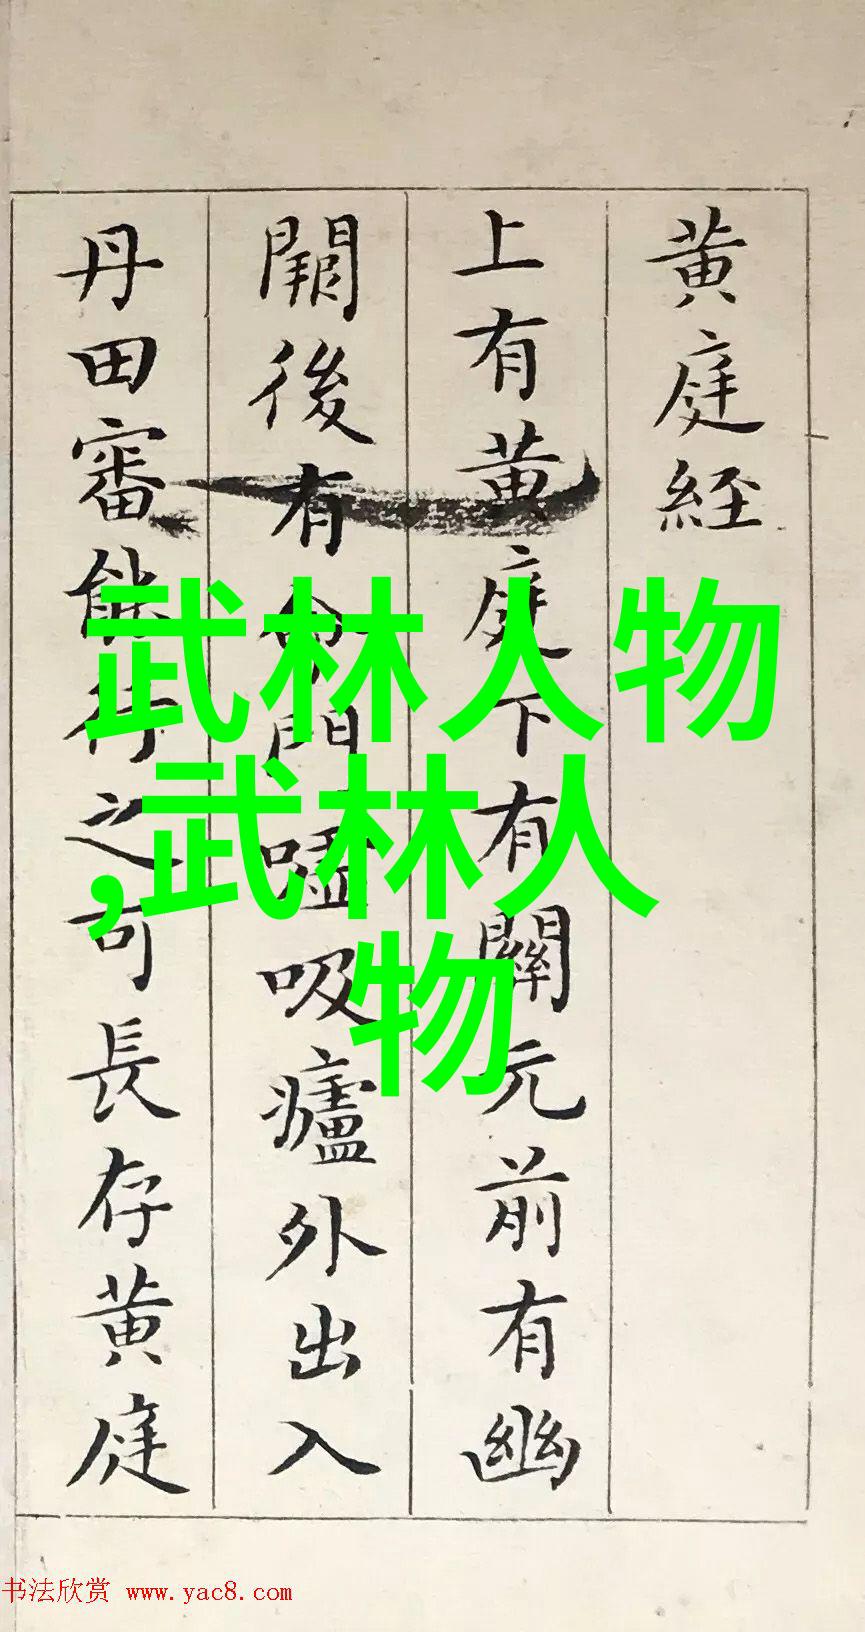 黄庭経
上有黄庭下有關元前有幽
闕後有命門嘘吸廬外出入
丹田審能行之可長存黄庭
武林人物
,武林人
物
书法欣赏 www.yac8.com